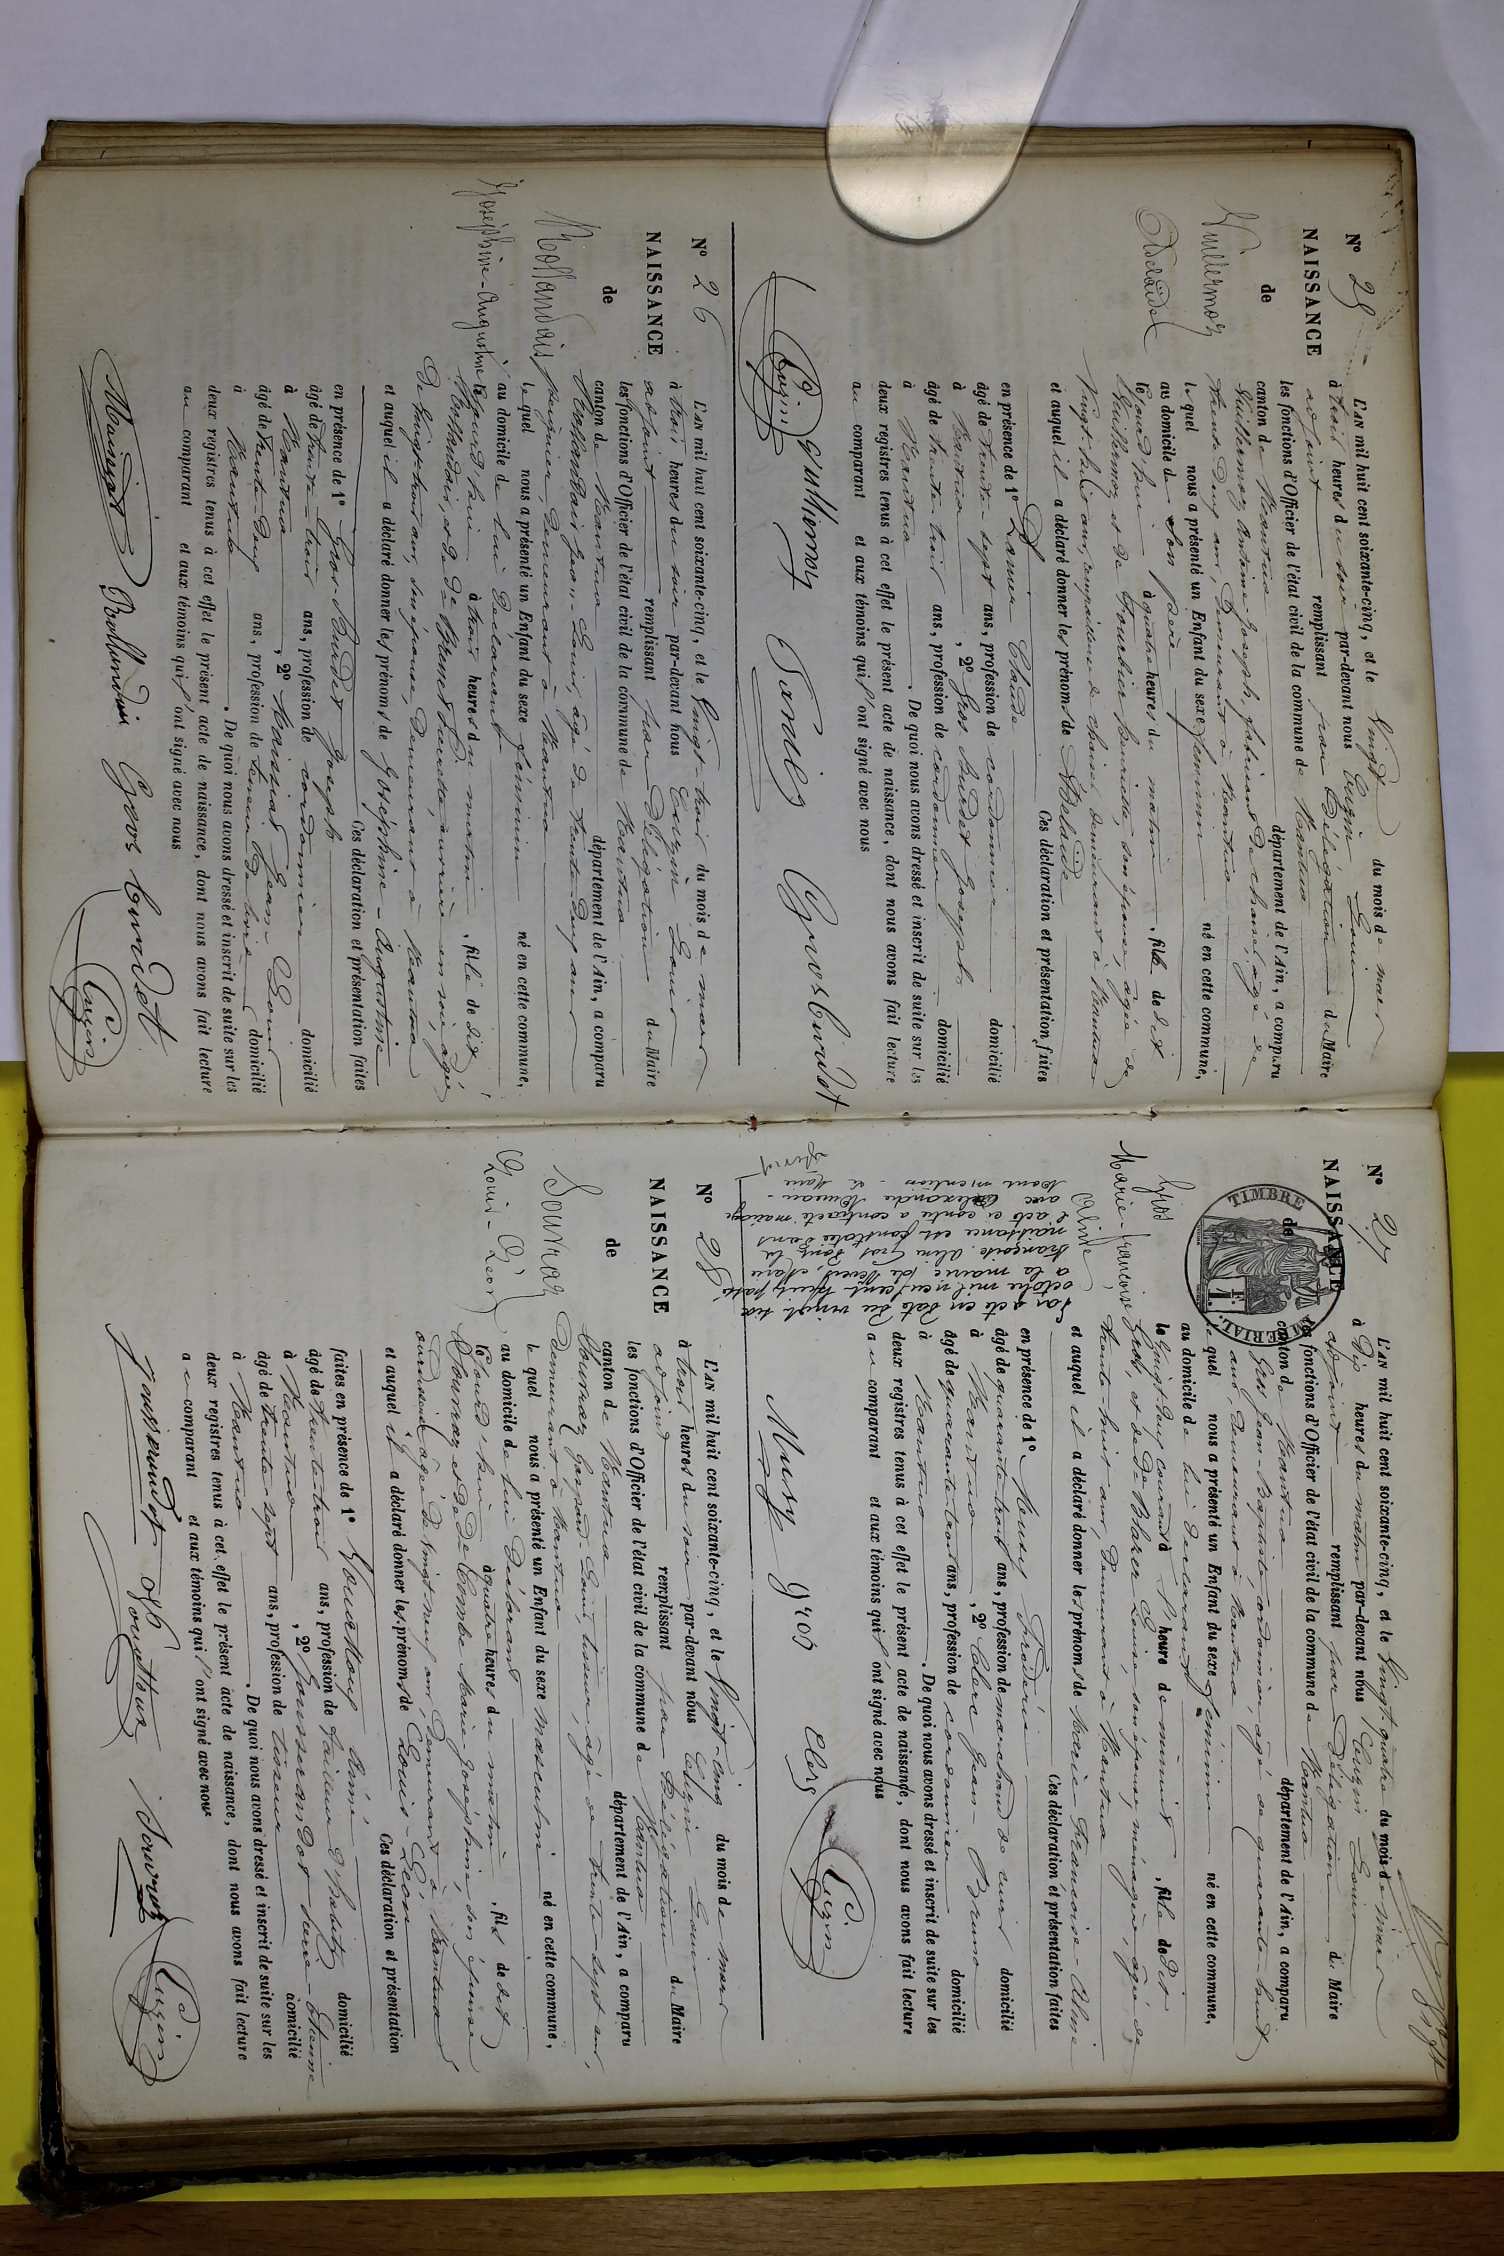 N° 25
NAISSANCE
de
Vuillermoz
Adelaïde
L'AN mil huit cent soixante-cinq, et le Vingt du mois de mars
à trois heures du soir par-devant nous Cugin Louis
adjoint remplissant par Délégation du Maire
les fonctions d'Officier de l'état civil de la commune de Nantua
canton de Nantua département de l'Ain, a comparu
Vuillermoz Antoine-Joseph, fabricant de chaises, âgé de
trente deux ans, Demeurant à Nantua
lequel nous a présenté un Enfant du sexe féminin né en cette commune,
au domicile de son père
le jourd'hui à quatre heures du matin, fille de dit
Vuillermoz et de Tourbier henriette, son épouse, âgée de
Vingt-huit ans, empailleuse de chaises, demeurant à Nantua
et auquel il a déclaré donner les prénoms de Adelaïde
Ces déclaration et présentation faites
en présence de 1° Claude
âgé de trente-sept ans, profession de cordonnier domicilié
à Nantua, 2° Gros burdet Joseph
âgé de trente trois ans, profession de cordonnier domicilié
à Nantua. De quoi nous avons dressé et inscrit de suite sur les
deux registres tenus à cet effet le présent acte de naissance, dont nous avons fait lecture
au comparant et aux témoins qui l'ont signé avec nous
Cugin Vuillermoz Gros burdet
N° 26
NAISSANCE
de
Rollandais
Joséphine-Augustine
L'AN mil huit cent soixante-cinq, et le Vingt-trois du mois de mars
à trois heures du soir par-devant nous Cugin Louis
adjoint remplissant par Délégation du Maire
les fonctions d'Officier de l'état civil de la commune de Nantua
canton de Nantua département de l'Ain, a comparu
Rollandais Jean-Louis, âgé de trente deux ans
peignier, demeurant à Nantua
lequel nous a présenté un Enfant du sexe féminin né en cette commune,
au domicile de lui Déclarant
le jourd'hui à trois heures du matin, fille de dit
Rollandais, et de ouvrière en soie, âgée
de Vingt-trois ans, son épouse, Demeurant à Nantua
et auquel il a déclaré donner les prénoms de Joséphine-Augustine
Ces déclaration et présentation faites
en présence de 1° Gros-Burdet Joseph
âgé de trente-trois ans, profession de cordonnier domicilié
à Nantua, 2° Maissiat Jean-Louis
âgé de trente-deux ans, profession de tourneur domicilié
à Nantua. De quoi nous avons dressé et inscrit de suite sur les
deux registres tenus à cet effet le présent acte de naissance, dont nous avons fait lecture
au comparant et aux témoins qui l'ont signé avec nous
Maissiat Rollandais Gros burdet Cugin
N° 27
NAISSANCE
de
TIMBRE IMPÉRIAL
1 F.
Gros
Marie-Françoise
Aline
Par acte en date du vingt six
octobre mil neuf cent huit passé
à la mairie de , Marie
Françoise Aline Gros dont la
naissance est constatée dans
l'acte ci contre a contracté mariage
avec Alexandre
Dont mention - Le Maire
L'AN mil huit cent soixante-cinq, et le Vingt quatre du mois de mars
à Dix heures du matin par-devant nous Cugin Louis
adjoint remplissant par Délégation du Maire
les fonctions d'Officier de l'état civil de la commune de Nantua
canton de Nantua département de l'Ain, a comparu
Gros Jean-Baptiste, cordonnier, âgé de quarante-huit
ans, Demeurant à Nantua
lequel nous a présenté un Enfant du sexe féminin né en cette commune,
au domicile de lui Déclarant
le Vingt-deux courant à heure de minuit, fille de dit
Gros, et de Louise, son épouse, ménagère, âgée de
trente-huit ans, Demeurant à Nantua
et auquel il a déclaré donner les prénoms de Marie-Françoise-Aline
Ces déclaration et présentation faites
en présence de 1° Musy Frédéric
âgé de quarante trois ans, profession de marchand de cuirs domicilié
à Nantua, 2° Clerc Jean Bruno
âgé de quarante-trois ans, profession de cordonnier domicilié
à Nantua. De quoi nous avons dressé et inscrit de suite sur les
deux registres tenus à cet effet le présent acte de naissance, dont nous avons fait lecture
au comparant et aux témoins qui l'ont signé avec nous
Musy Gros Clerc Cugin
N° 28
NAISSANCE
de
Souvraz
Louis-Léon
L'AN mil huit cent soixante-cinq, et le Vingt-cinq du mois de mars
à trois heures du soir par-devant nous Cugin Louis
adjoint remplissant par Délégation du Maire
les fonctions d'Officier de l'état civil de la commune de Nantua
canton de Nantua département de l'Ain, a comparu
Souvraz Gaspard-Louis, tisseur, âgé de trente-sept ans,
Demeurant à Nantua
lequel nous a présenté un Enfant du sexe masculin né en cette commune,
au domicile de lui Déclarant
le jourd'hui à quatre heures du matin, fils de dit
Souvraz et de Decombe Marie-Joséphine, son épouse
ourdisseuse, âgée de Vingt-neuf ans, Demeurant à Nantua
et auquel il a déclaré donner les prénoms de Louis-Léon
Ces déclaration et présentation
faites en présence de 1° Aimé
âgé de trente-trois ans, profession de tailleur d'habits domicilié
à Nantua, 2° Jousserandot Pierre-Etienne
âgé de trente-sept ans, profession de tisseur domicilié
à Nantua. De quoi nous avons dressé et inscrit de suite sur les
deux registres tenus à cet effet le présent acte de naissance, dont nous avons fait lecture
au comparant et aux témoins qui l'ont signé avec nous
Jousserandot Souvraz Cugin